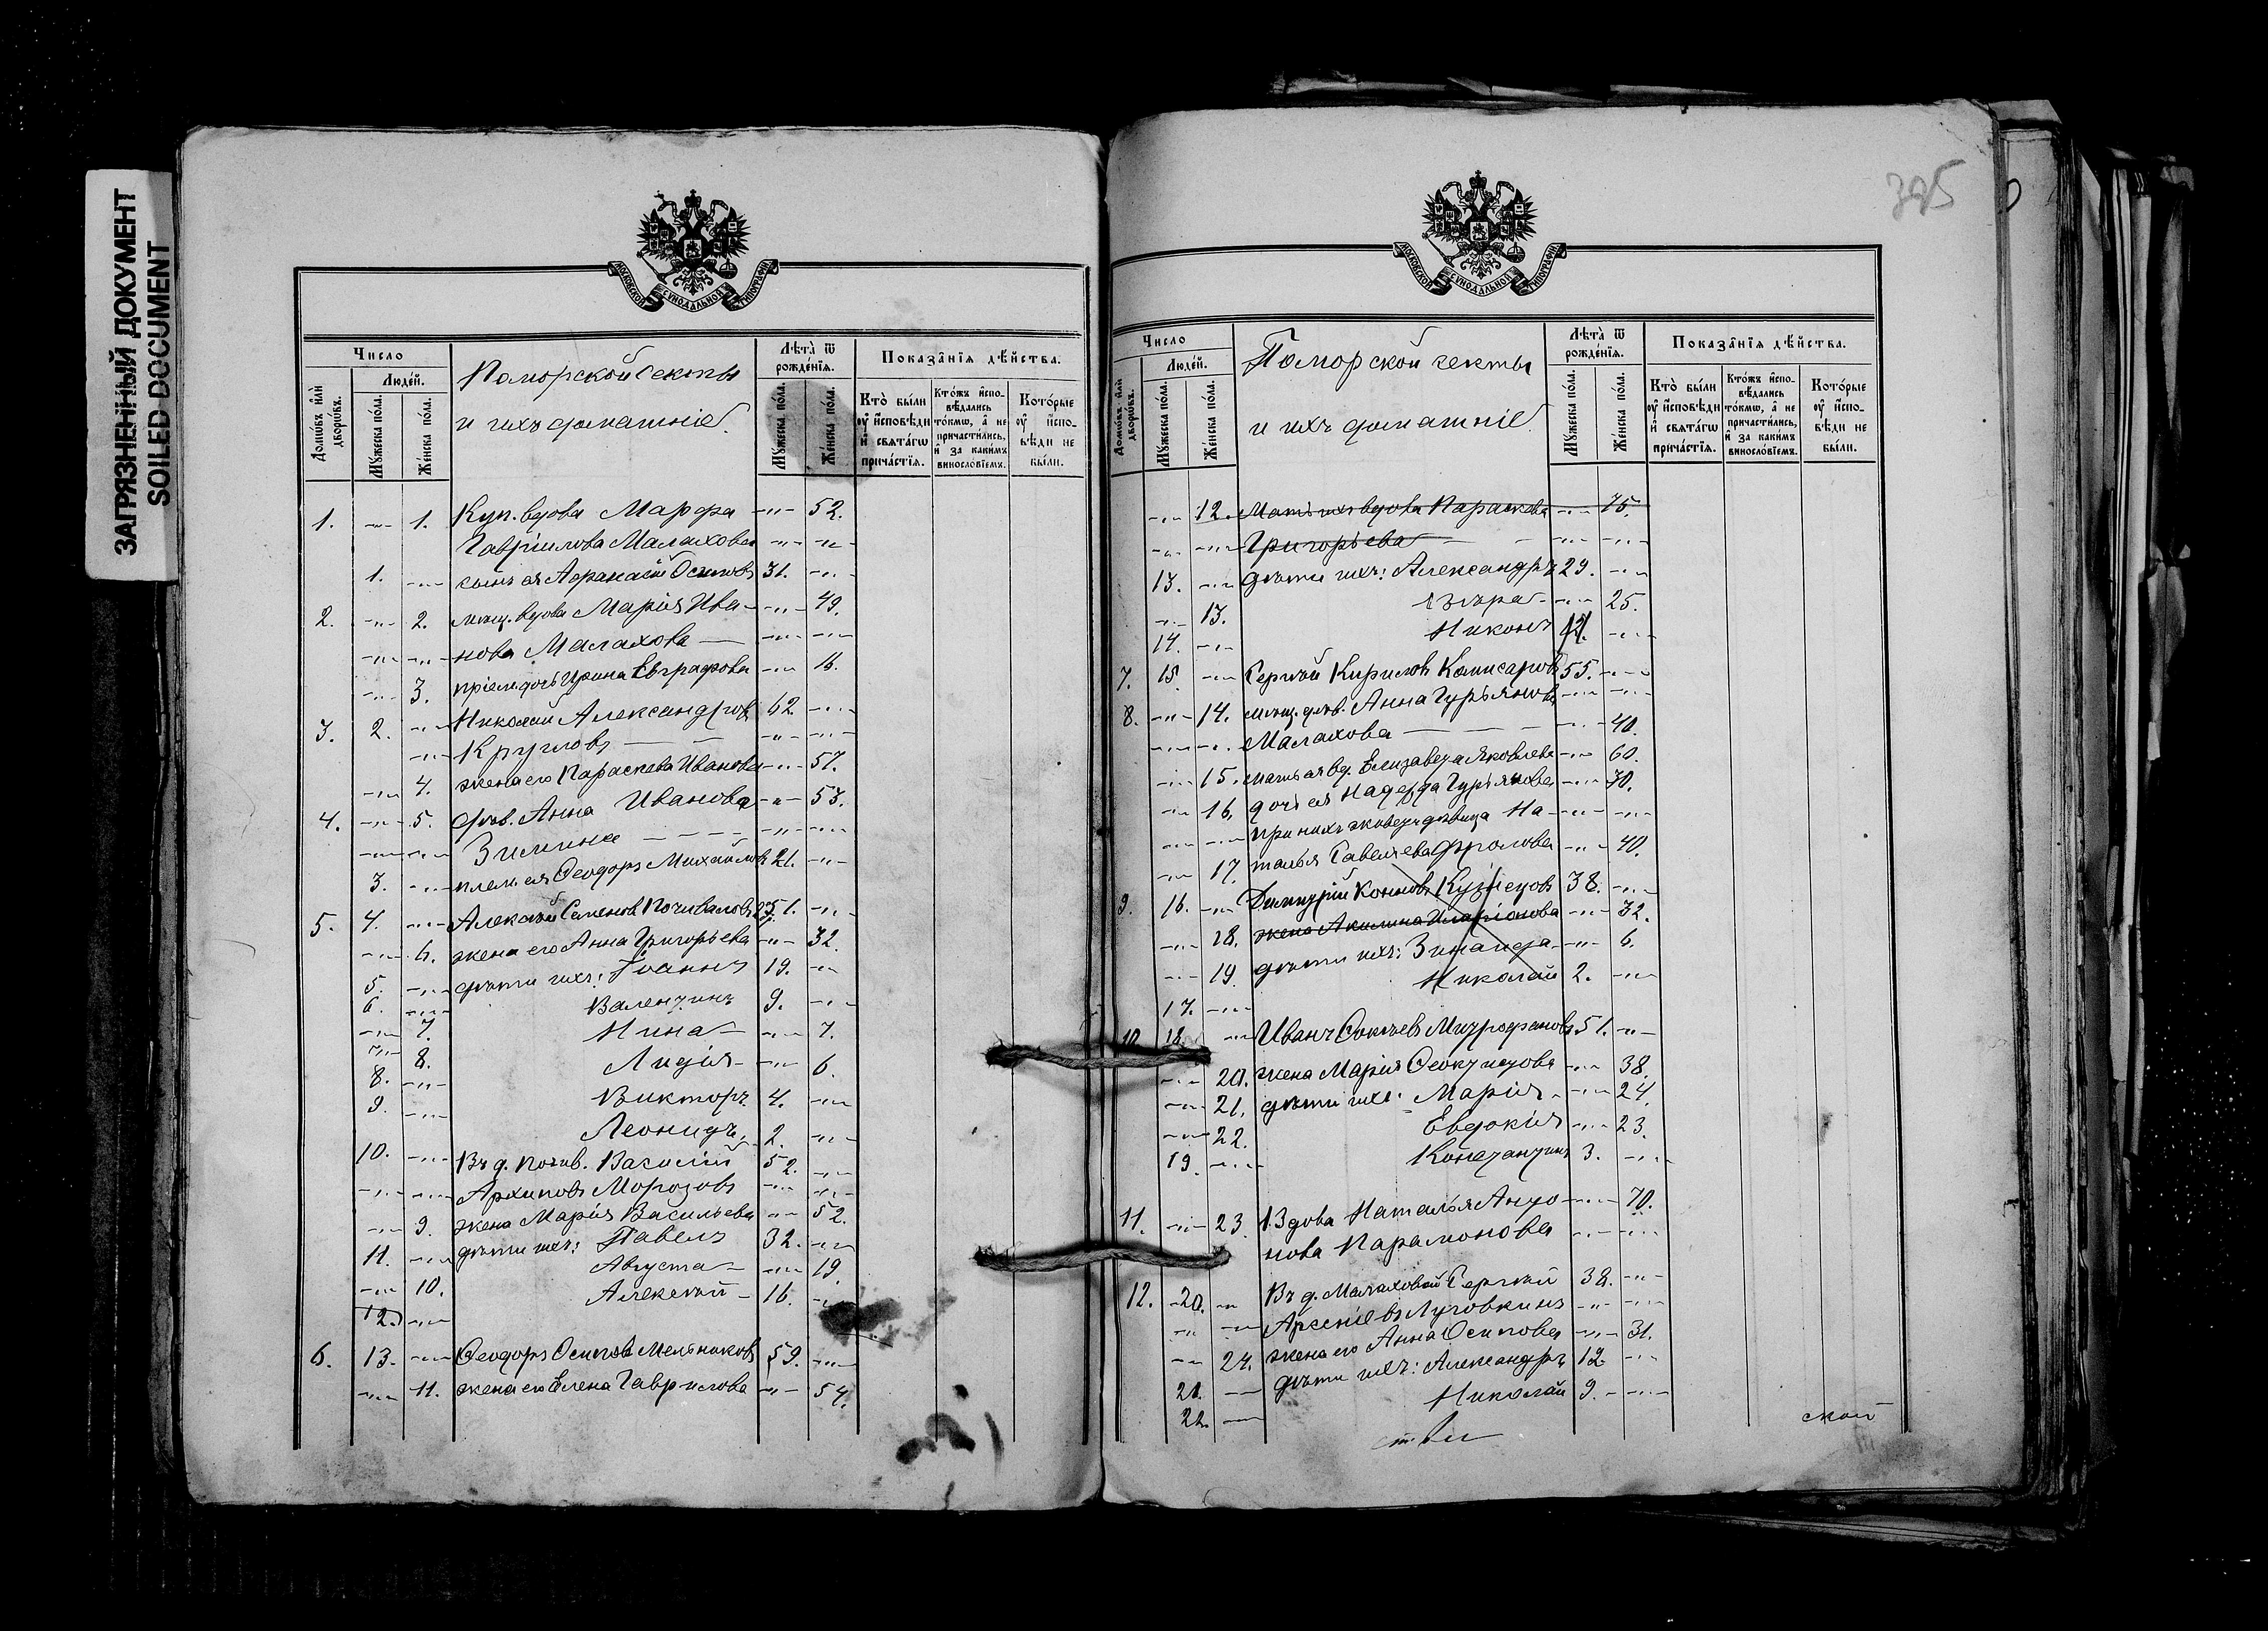 ЗАГРЯЗНЕННЫЙ ДОКУМЕНТ
SOILED DOCUMENT
МОСКОВСКОЙ СѴНОДАЛЬНОЙ ТИПОГРАФІИ
Число
Людей.
Домовъ или дворовъ.
Мужеска пола.
Женска пола.
Поморской секты
и ихъ домашніе.
Лѣта ѿ рожденія.
Мужеска пола.
Женска пола.
Показанія дѣйства.
Кто были у исповѣди и святаго причастія.
Ктожъ исповѣдались токмо, а не причастились, и за какимъ винословіемъ.
Которые у исповѣди не были.
1. -„- 1. Куп. вдова Марфа -„- 52.
Гавріилова Малахова -„- -„-
1. -„- сынъ ея Афанасій Осиповъ 31. -„-
2. -„- 2. мѣщ. вдова Марія Ива- -„- 49.
-„- -„- нова Малахова -„- -„-
-„- 3. пріем. дочь Ирина Евграфова -„- 16.
3. 2. -„- Николай Александровъ 62. -„-
-„- Кругловъ -„- -„-
-„- 4. жена его Параскева Иванова -„- 57.
4. -„- 5. дѣв. Анна Иванова -„- 53.
-„- -„- Зимина -„- -„-
3. -„- плем. ея Ѳеодоръ Михайловъ 21. -„-
5. 4. -„- Алексѣй Семеновъ Почиваловъ 51. -„-
-„- 6. жена его Анна Григорьева -„- 32.
5. -„- дѣти ихъ: Іоаннъ 19. -„-
6. -„- Валентинъ 9. -„-
-„- 7. Нина -„- 7.
-„- 8. Лидія -„- 6.
8. -„- Викторъ 4. -„-
9. -„- Леонидъ 2. -„-
10. -„- Въ д. Почив. Василій 52. -„-
-„- -„- Архиповъ Морозовъ -„- -„-
-„- 9. жена Марія Васильева -„- 52.
11. -„- дѣти ихъ: Павелъ 32. -„-
-„- 10. Августа -„- 19.
12. -„- Алексѣй 16. -„-
6. 13. -„- Ѳеодоръ Осиповъ Мельниковъ 59. -„-
-„- 11. жена его Елена Гаврилова -„- 54.
325
МОСКОВСКОЙ СѴНОДАЛЬНОЙ ТИПОГРАФІИ
Число
Людей.
Домовъ или дворовъ.
Мужеска пола.
Женска пола.
Поморской секты
и ихъ домашніе.
Лѣта ѿ рожденія.
Мужеска пола.
Женска пола.
Показанія дѣйства.
Кто были у исповѣди и святаго причастія.
Ктожъ исповѣдались токмо, а не причастились, и за какимъ винословіемъ.
Которые у исповѣди не были.
-„- 12. Мать ихъ вдова Параскева -„- 75.
-„- -„- Григорьева -„- -„-
13. -„- дѣти ихъ: Александръ 29. -„-
-„- 13. Вѣра -„- 25.
14. -„- Никонъ -„-
7. 15. -„- Сергѣй Кириловъ Комисаровъ 55. -„-
8. -„- 14. мѣщ. дѣв. Анна Гурьянова -„- -„-
-„- -„- Малахова -„- 40.
-„- 15. мать ея вд. Елизавета Яковлева -„- 60.
-„- 16. дочь ея Надежда Гурьянова -„- 30.
-„- -„- при нихъ живетъ дѣвица На- -„- -„-
-„- 17. талья Савельева Фролова -„- 40.
9. 16. -„- Димитрій Кононовъ Кузнецовъ 38. -„-
-„- 18. жена Акилина Иларіонова -„- 32.
-„- 19. дѣти ихъ: Зинаида -„- 6.
17. -„- Николай 2. -„-
10. 18. -„- Иванъ Фокѣевъ Митрофановъ 51. -„-
-„- 20. жена Марія Ѳеоктистова -„- 38.
-„- 21. дѣти ихъ: Марія -„- 24.
-„- 22. Евдокія -„- 23.
19. -„- Константинъ 3. -„-
11. -„- 23. Вдова Наталья Анто- -„- 70.
нова Парамонова -„- -„-
12. 20. -„- Въ д. Малаховой Сергѣй 38. -„-
-„- -„- Арсеніевъ Луговкинъ -„- -„-
-„- 24. жена его Анна Осипова -„- 31.
21. -„- дѣти ихъ: Александръ 12. -„-
22. -„- Николай 9. -„-
ской